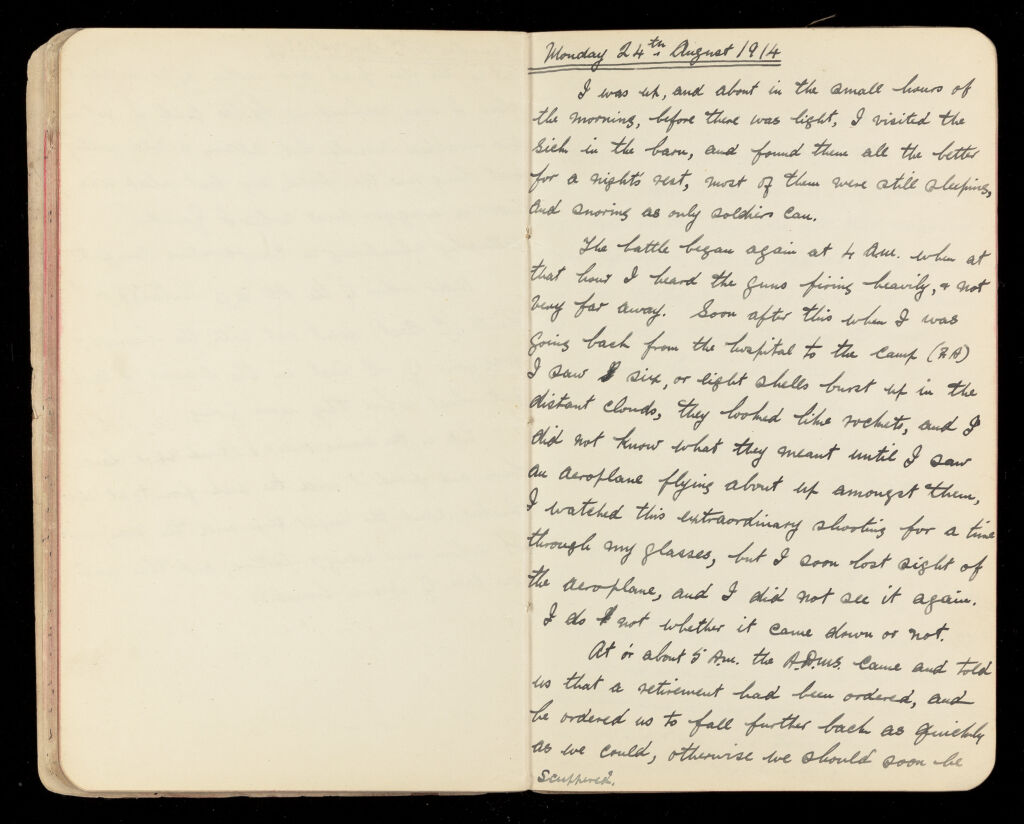 Monday 24th August 1914
I was up, and about in the small hours of
the morning, before there was light, I visited the
sick in the barn, and found them all the better
for a nights rest, most of them were still sleeping,
and snoring as only soldiers can.
The battle began again at 4 A.M. when at
that hour I heard the guns firing heavily, & not
very far away. Soon after this when I was
going back from the hospital to the camp (F.A)
I saw six, or eight shells burst up in the
distant clouds, they looked like rockets, and I
did not know what they meant until I saw
an aeroplane flying about up amongst them,
I watched this extraordinary shooting for a time
through my glasses, but I soon lost sight of
the aeroplane, and I did not see it again.
I do not whether it came down or not.
At or about 5 A.m. the A.D.M.S. came and told
us that a retirement had been ordered, and
he ordered us to fall further back as quickly
as we could, otherwise we should soon be
scuppered.